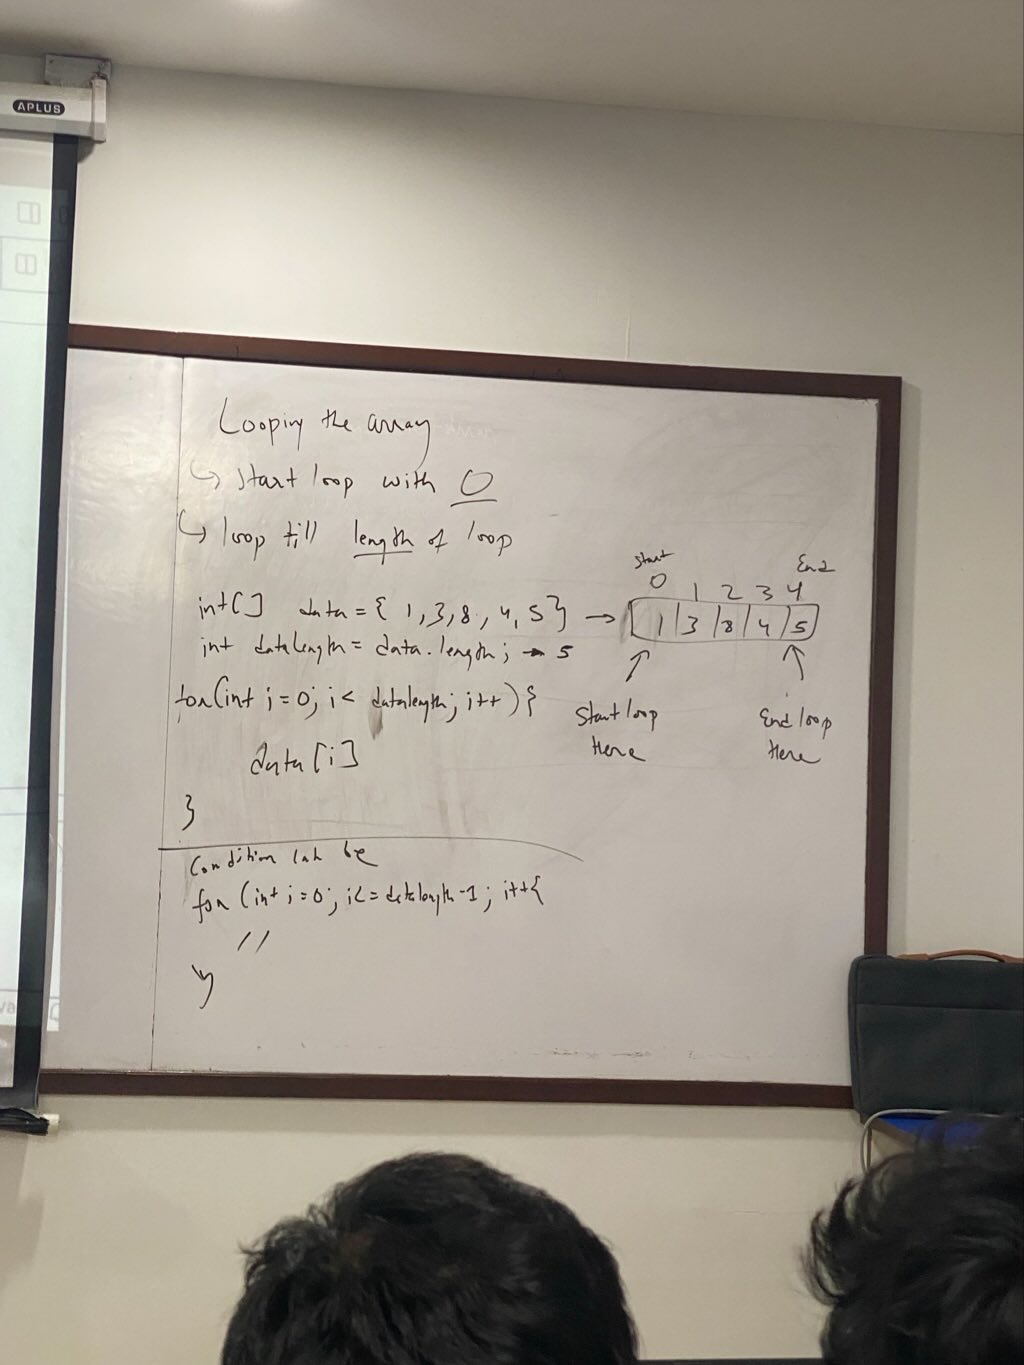 APLUS
Looping the array
↳ Start loop with 0
↳ loop till length of loop
int[] data = { 1, 3, 8, 4, 5 } →
int dataLength = data.length; → 5
for(int i = 0; i < datalength; i++) {
data[i]
}
Start
End
0 1 2 3 4
1 3 8 4 5
Start loop
Here
End loop
Here
Condition can be
for (int i = 0; i <= datalength - 1; i++{
//
}